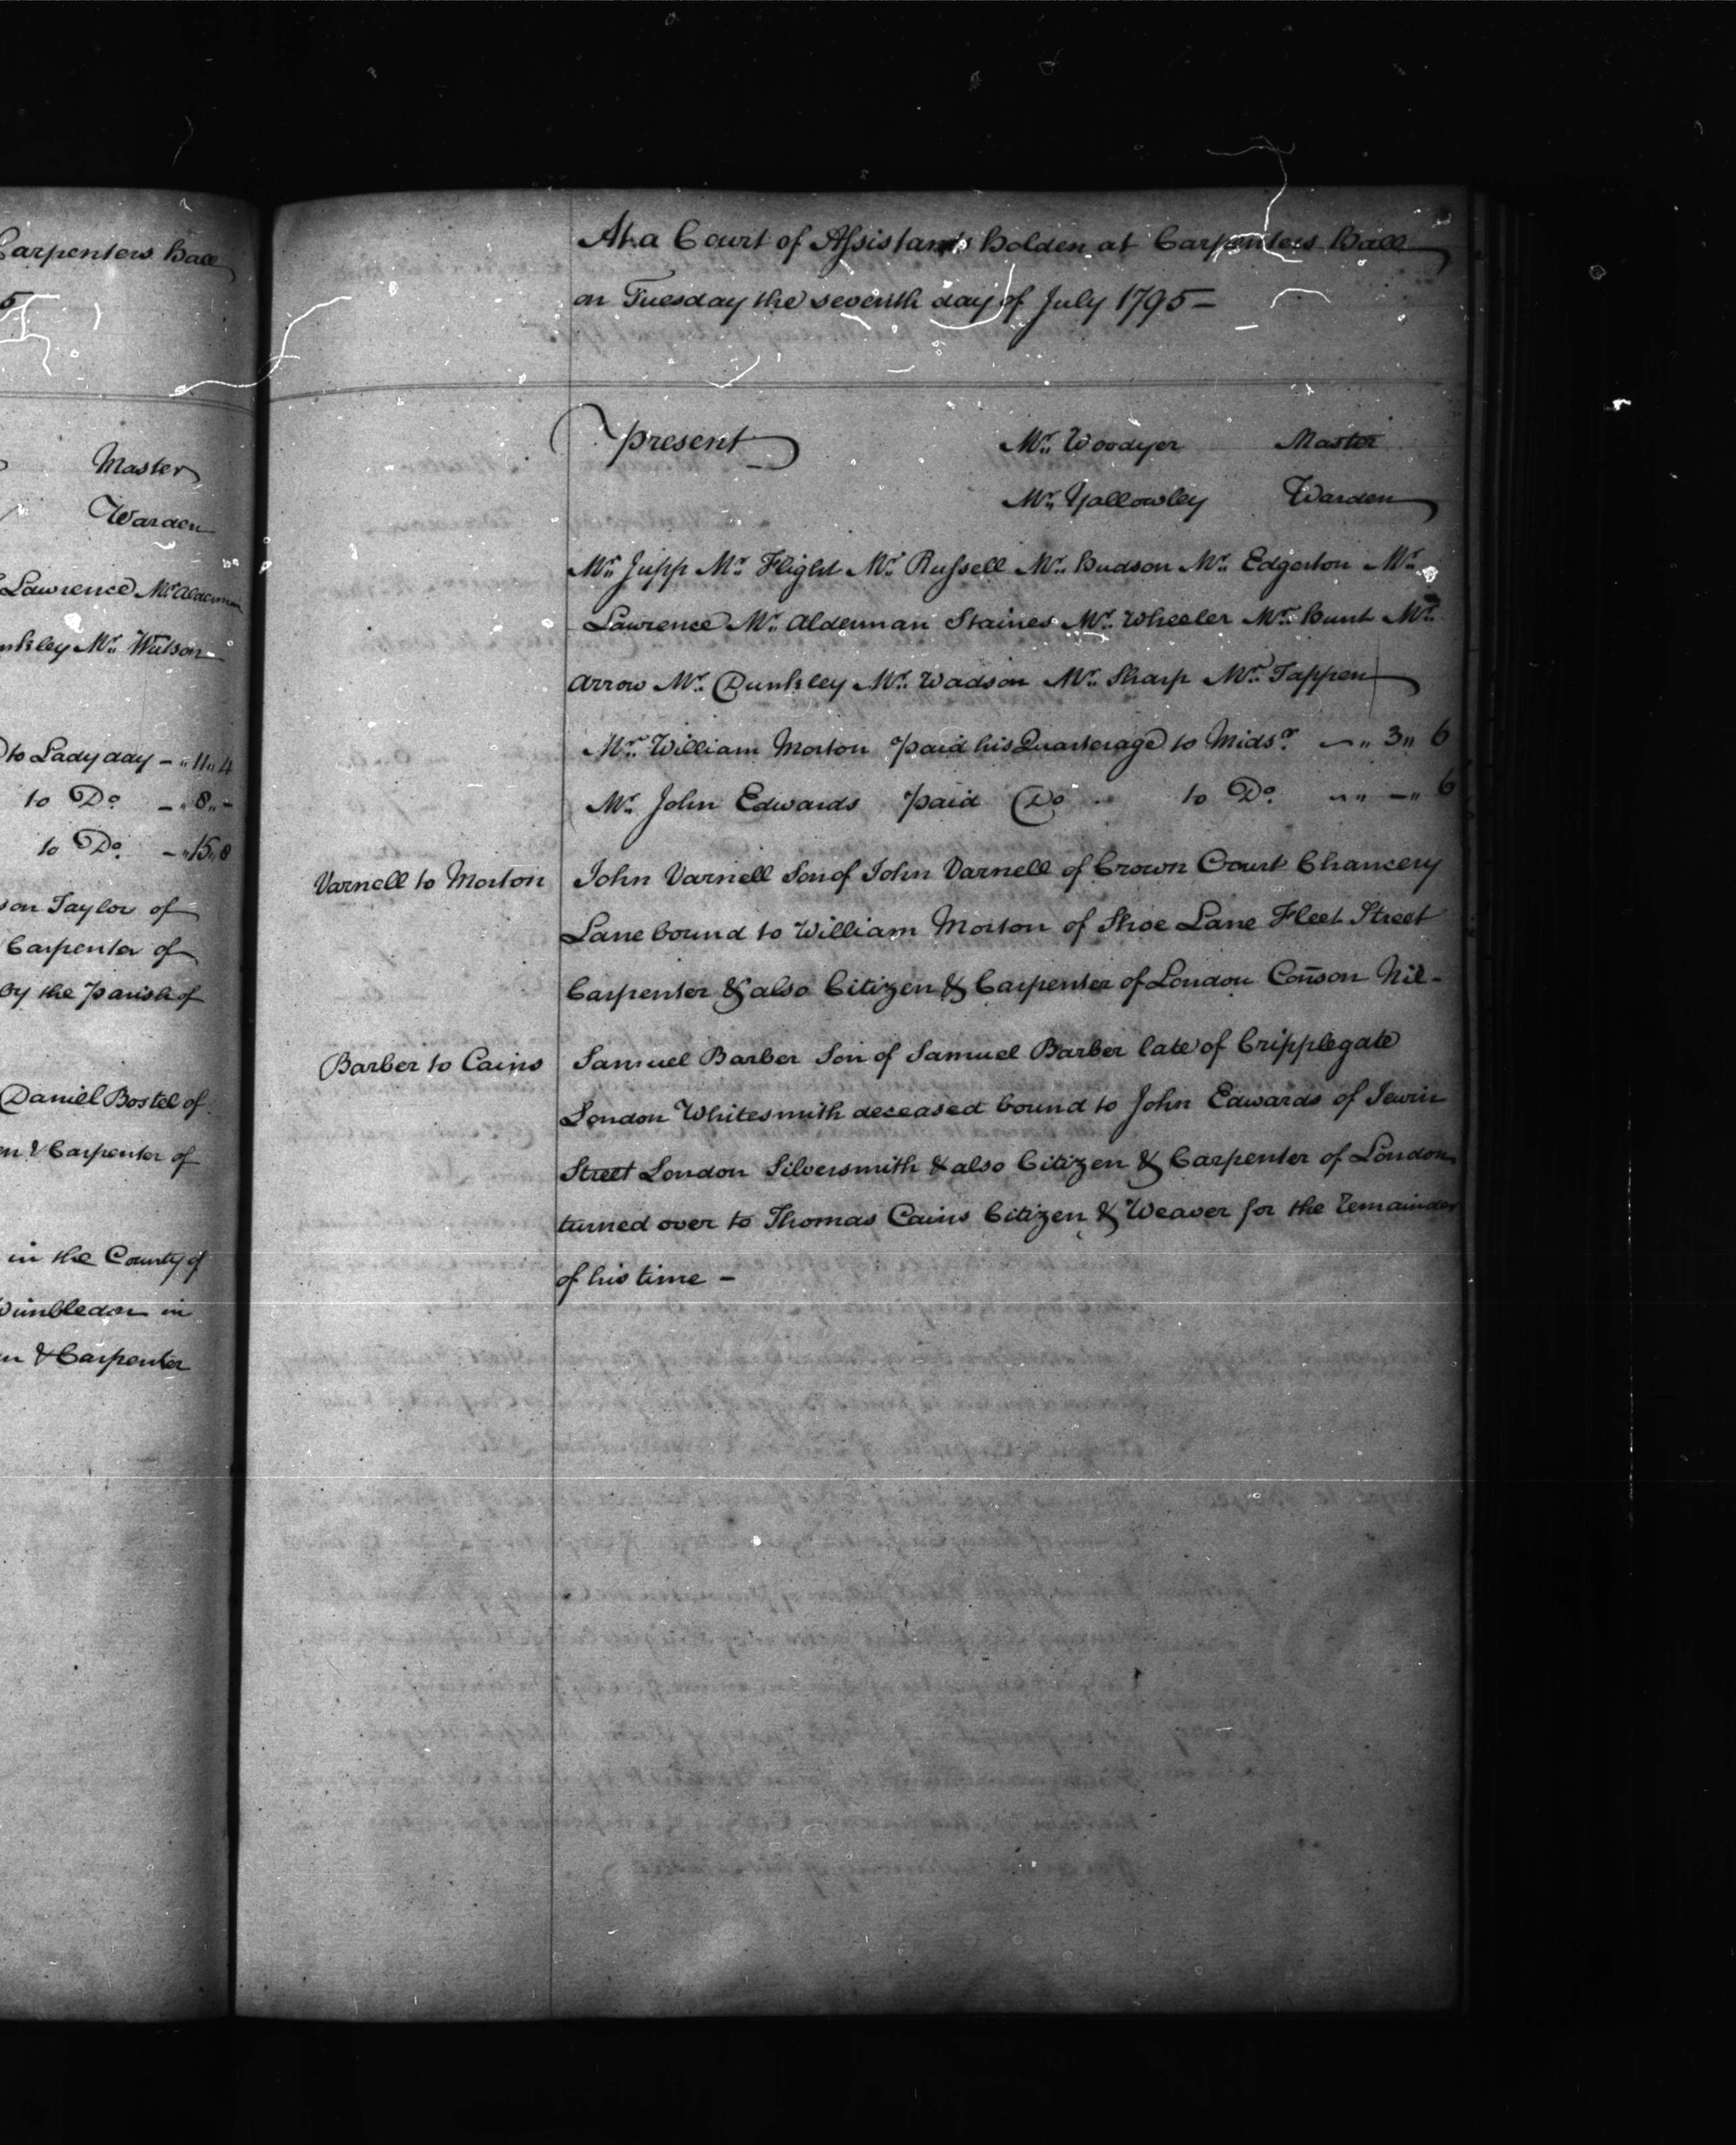 Carpenters Hall
5
Master
Warden
Lawrence Mr. Alderman
nkley Mr. Watson
to Lady day - " 11 " 4
to Do. - " 8 " -
to Do. - " 15 " 8
son Taylor of
Carpenter of
by the Parish of
Daniel Bostel of
en & Carpenter of
in the County of
Wimbledon in
en & Carpenter
At a Court of Assistants holden at Carpenters Hall
on Tuesday the seventh day of July 1795 -
Present
Mr. Woodyer Master
Mr. Yallowley Warden
Mr. Jupp Mr. Flight Mr. Russell Mr. Hudson Mr. Edgerton Mr.
Lawrence Mr. Alderman Staines Mr. Wheeler Mr. Hunt Mr.
Arrow Mr. Dunkley Mr. Wadson Mr. Sharp Mr. Tappen
Mr. William Morton paid his Quarterage to Midsr. - " 3 " 6
Mr. John Edwards paid Do. to Do. - " - " 6
Varnell to Morton
John Varnell Son of John Varnell of Crown Court Chancery
Lane bound to William Morton of Shoe Lane Fleet Street
Carpenter & also Citizen & Carpenter of London Con̄son Nil -
Barber to Cains
Samuel Barber Son of Samuel Barber late of Cripplegate
London Whitesmith deceased bound to John Edwards of Jewin
Street London Silversmith & also Citizen & Carpenter of London
turned over to Thomas Cains Citizen & Weaver for the remainder
of his time -